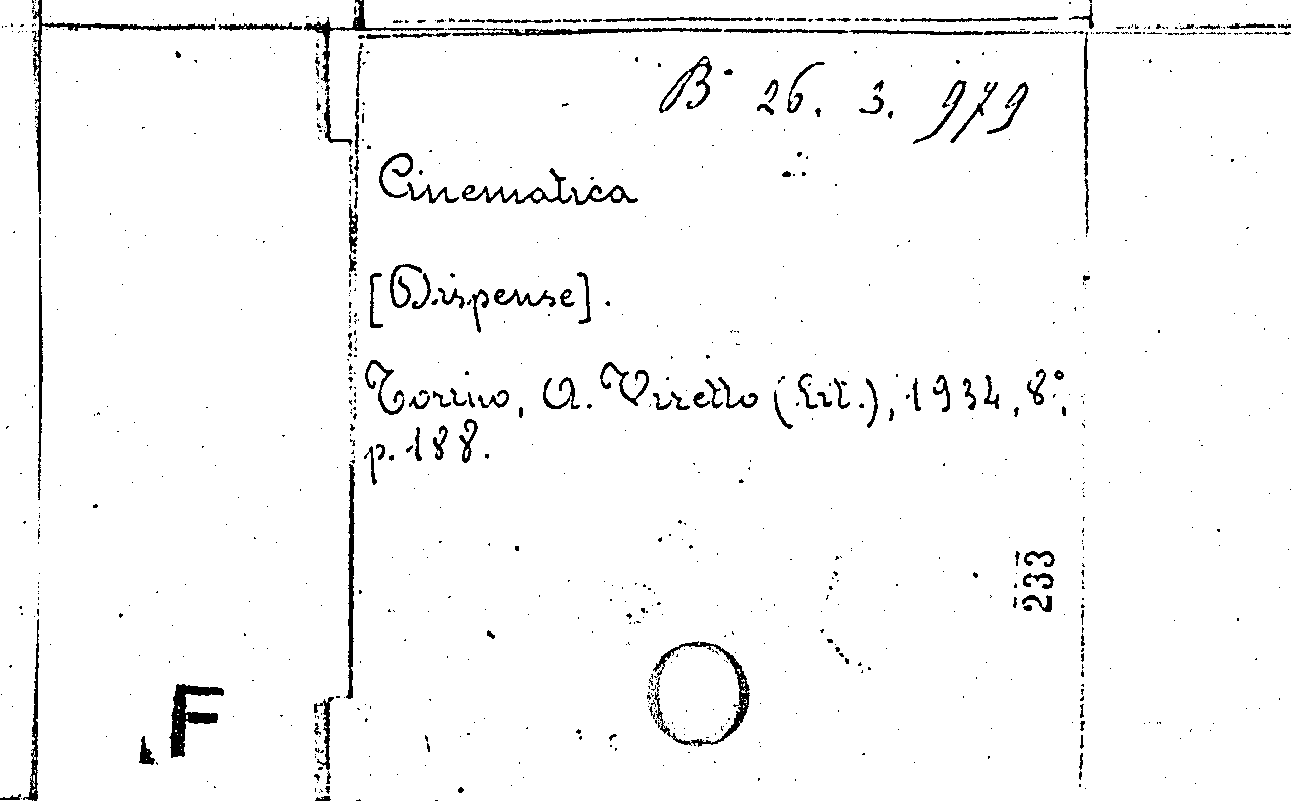 B. 26. 3. 979
Cinematica
[Dispense].
Torino, A. Viretto (Lit.), 1934, 8°,
p. 188.
233
F